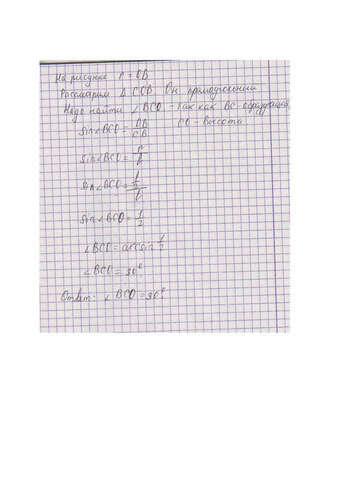 На рисунке r = OB
Рассмотрим Δ COB. Он прямоугольный
Надо найти ∠BCO - так как BC - образующая
sin∠BCO = OB/CB CO - высота
sin∠BCO = r/l
sin∠BCO = l/2/l
sin∠BCO = 1/2
∠BCO = arcsin 1/2
∠BCO = 30°
Ответ: ∠BCO = 30°